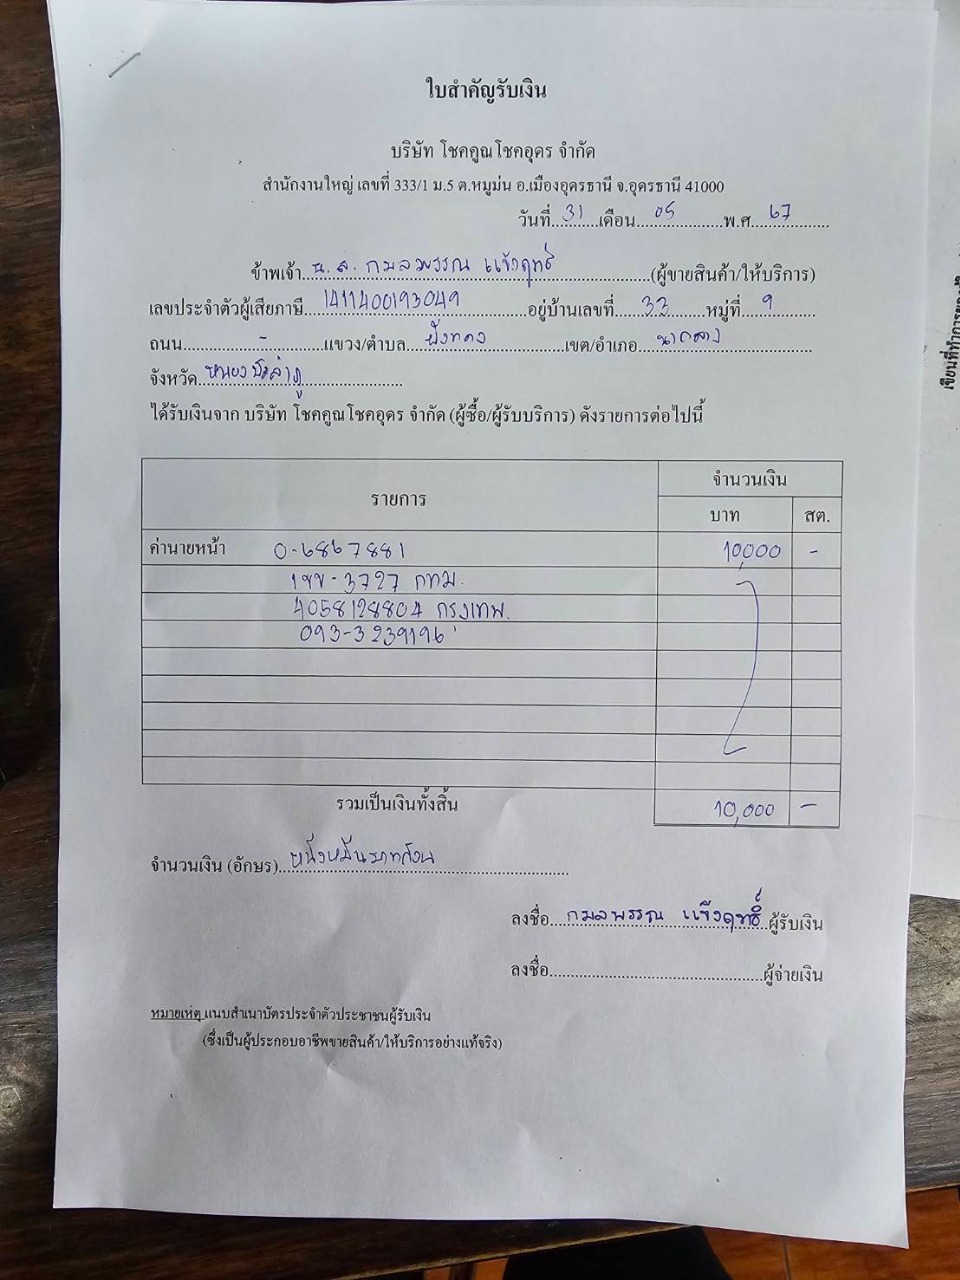 ใบสำคัญรับเงิน
บริษัท โชคคูณโชคอุดร จำกัด
สำนักงานใหญ่ เลขที่ 333/1 ม.5 ต.หมูม่น อ.เมืองอุดรธานี จ.อุดรธานี 41000
วันที่ 31 เดือน 05 พ.ศ. 67
ข้าพเจ้า น.ส. กมลพรรณ แข็งฤทธิ์ (ผู้ขายสินค้า/ให้บริการ)
เลขประจำตัวผู้เสียภาษี 1411400193049 อยู่บ้านเลขที่ 33 หมู่ที่ 9
ถนน - แขวง/ตำบล ฝั่งแดง เขต/อำเภอ นากลาง
จังหวัด หนองบัวลำภู
ได้รับเงินจาก บริษัท โชคคูณโชคอุดร จำกัด (ผู้ซื้อ/ผู้รับบริการ) ดังรายการต่อไปนี้
รายการ จำนวนเงิน
บาท สต.
ค่านายหน้า 0-6867881 10,000 -
1ฃฃ-3727 กทม.
4058128804 กรุงเทพ.
093-3239196
รวมเป็นเงินทั้งสิ้น 10,000 -
จำนวนเงิน (อักษร) หนึ่งหมื่นบาทถ้วน
ลงชื่อ กมลพรรณ แข็งฤทธิ์ ผู้รับเงิน
ลงชื่อ ผู้จ่ายเงิน
หมายเหตุ แนบสำเนาบัตรประจำตัวประชาชนผู้รับเงิน
(ซึ่งเป็นผู้ประกอบอาชีพขายสินค้า/ให้บริการอย่างแท้จริง)